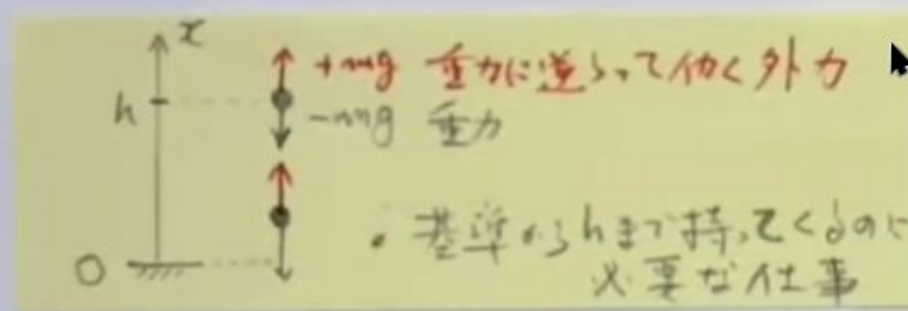 x
+mg 重力に逆らって働く外力
h
-mg 重力
・基準からhまで持ってくるのに
必要な仕事
O